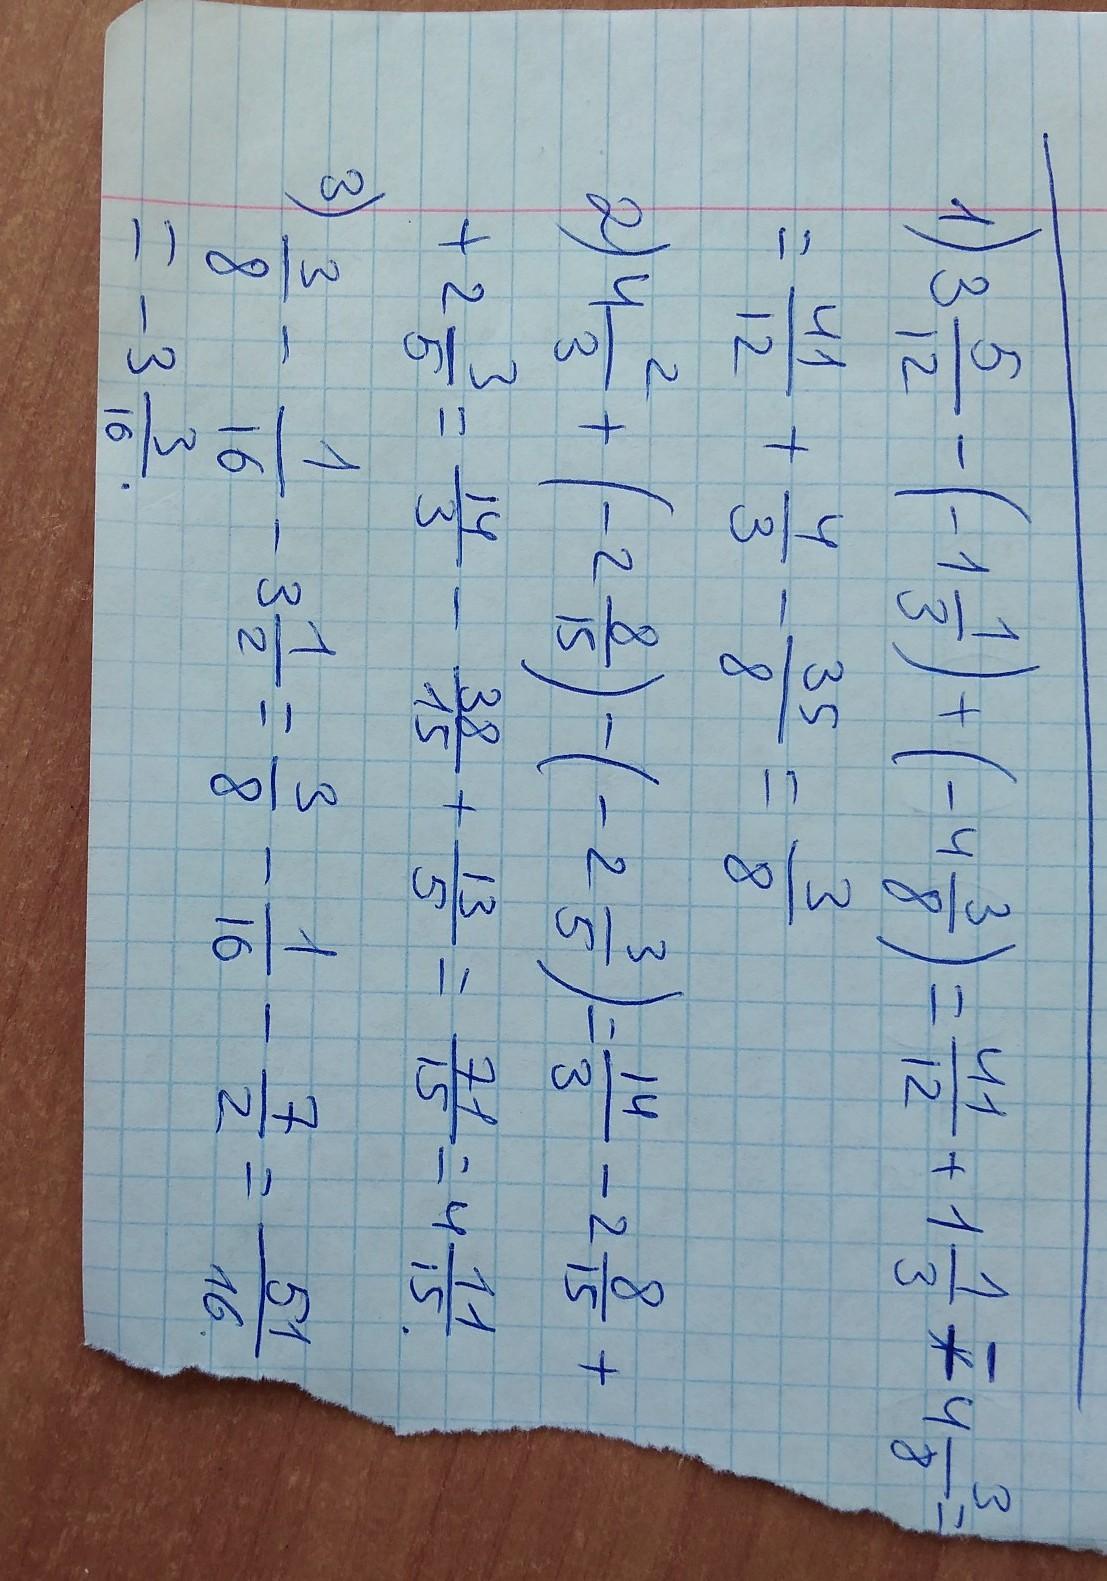 1) 3 5/12 - (-1 1/3) + (-4 3/8) = 41/12 + 1 1/3 - 4 3/8 =
= 41/12 + 4/3 - 35/8 = 3/8
2) 4 2/3 + (-2 8/15) - (-2 3/5) = 14/3 - 2 8/15 +
+ 2 3/5 = 14/3 - 38/15 + 13/5 = 71/15 = 4 11/15.
3) 3/8 - 1/16 - 3 1/2 = 3/8 - 1/16 - 7/2 = 51/16.
= -3 3/16.